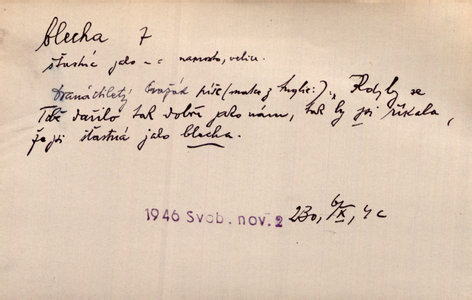 blecha 7
šťastná jako – = naprosto, velice.
Dvanáctiletý Dvořák píše (matce z Anglie:) „Kdyby se
Tobě dařilo tak dobře jako nám, tak by jsi říkala,
že jsi šťastná jako blecha.
1946 Svob. nov. 2 230, 6/X, 4c